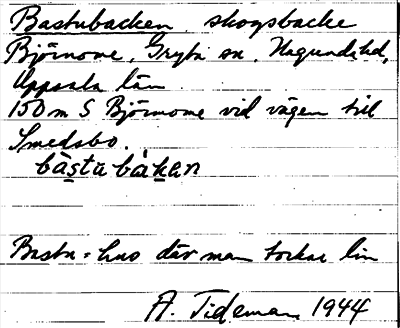 Bastubacken, skogsbacke
Björnome, Gryta sn, Hagunda hd,
Uppsala län
150 m S Björnome vid vägen till
Smedsbo.
bàstu bàkan
Bastu = hus där man torkar lin
A. Tideman 1944